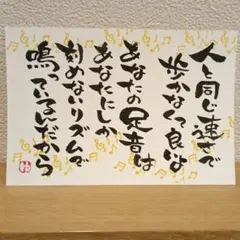 人と同じ速さで
歩かなくて良い
あなたの足音は
あなたにしか
刻めないリズムで
鳴っているんだから